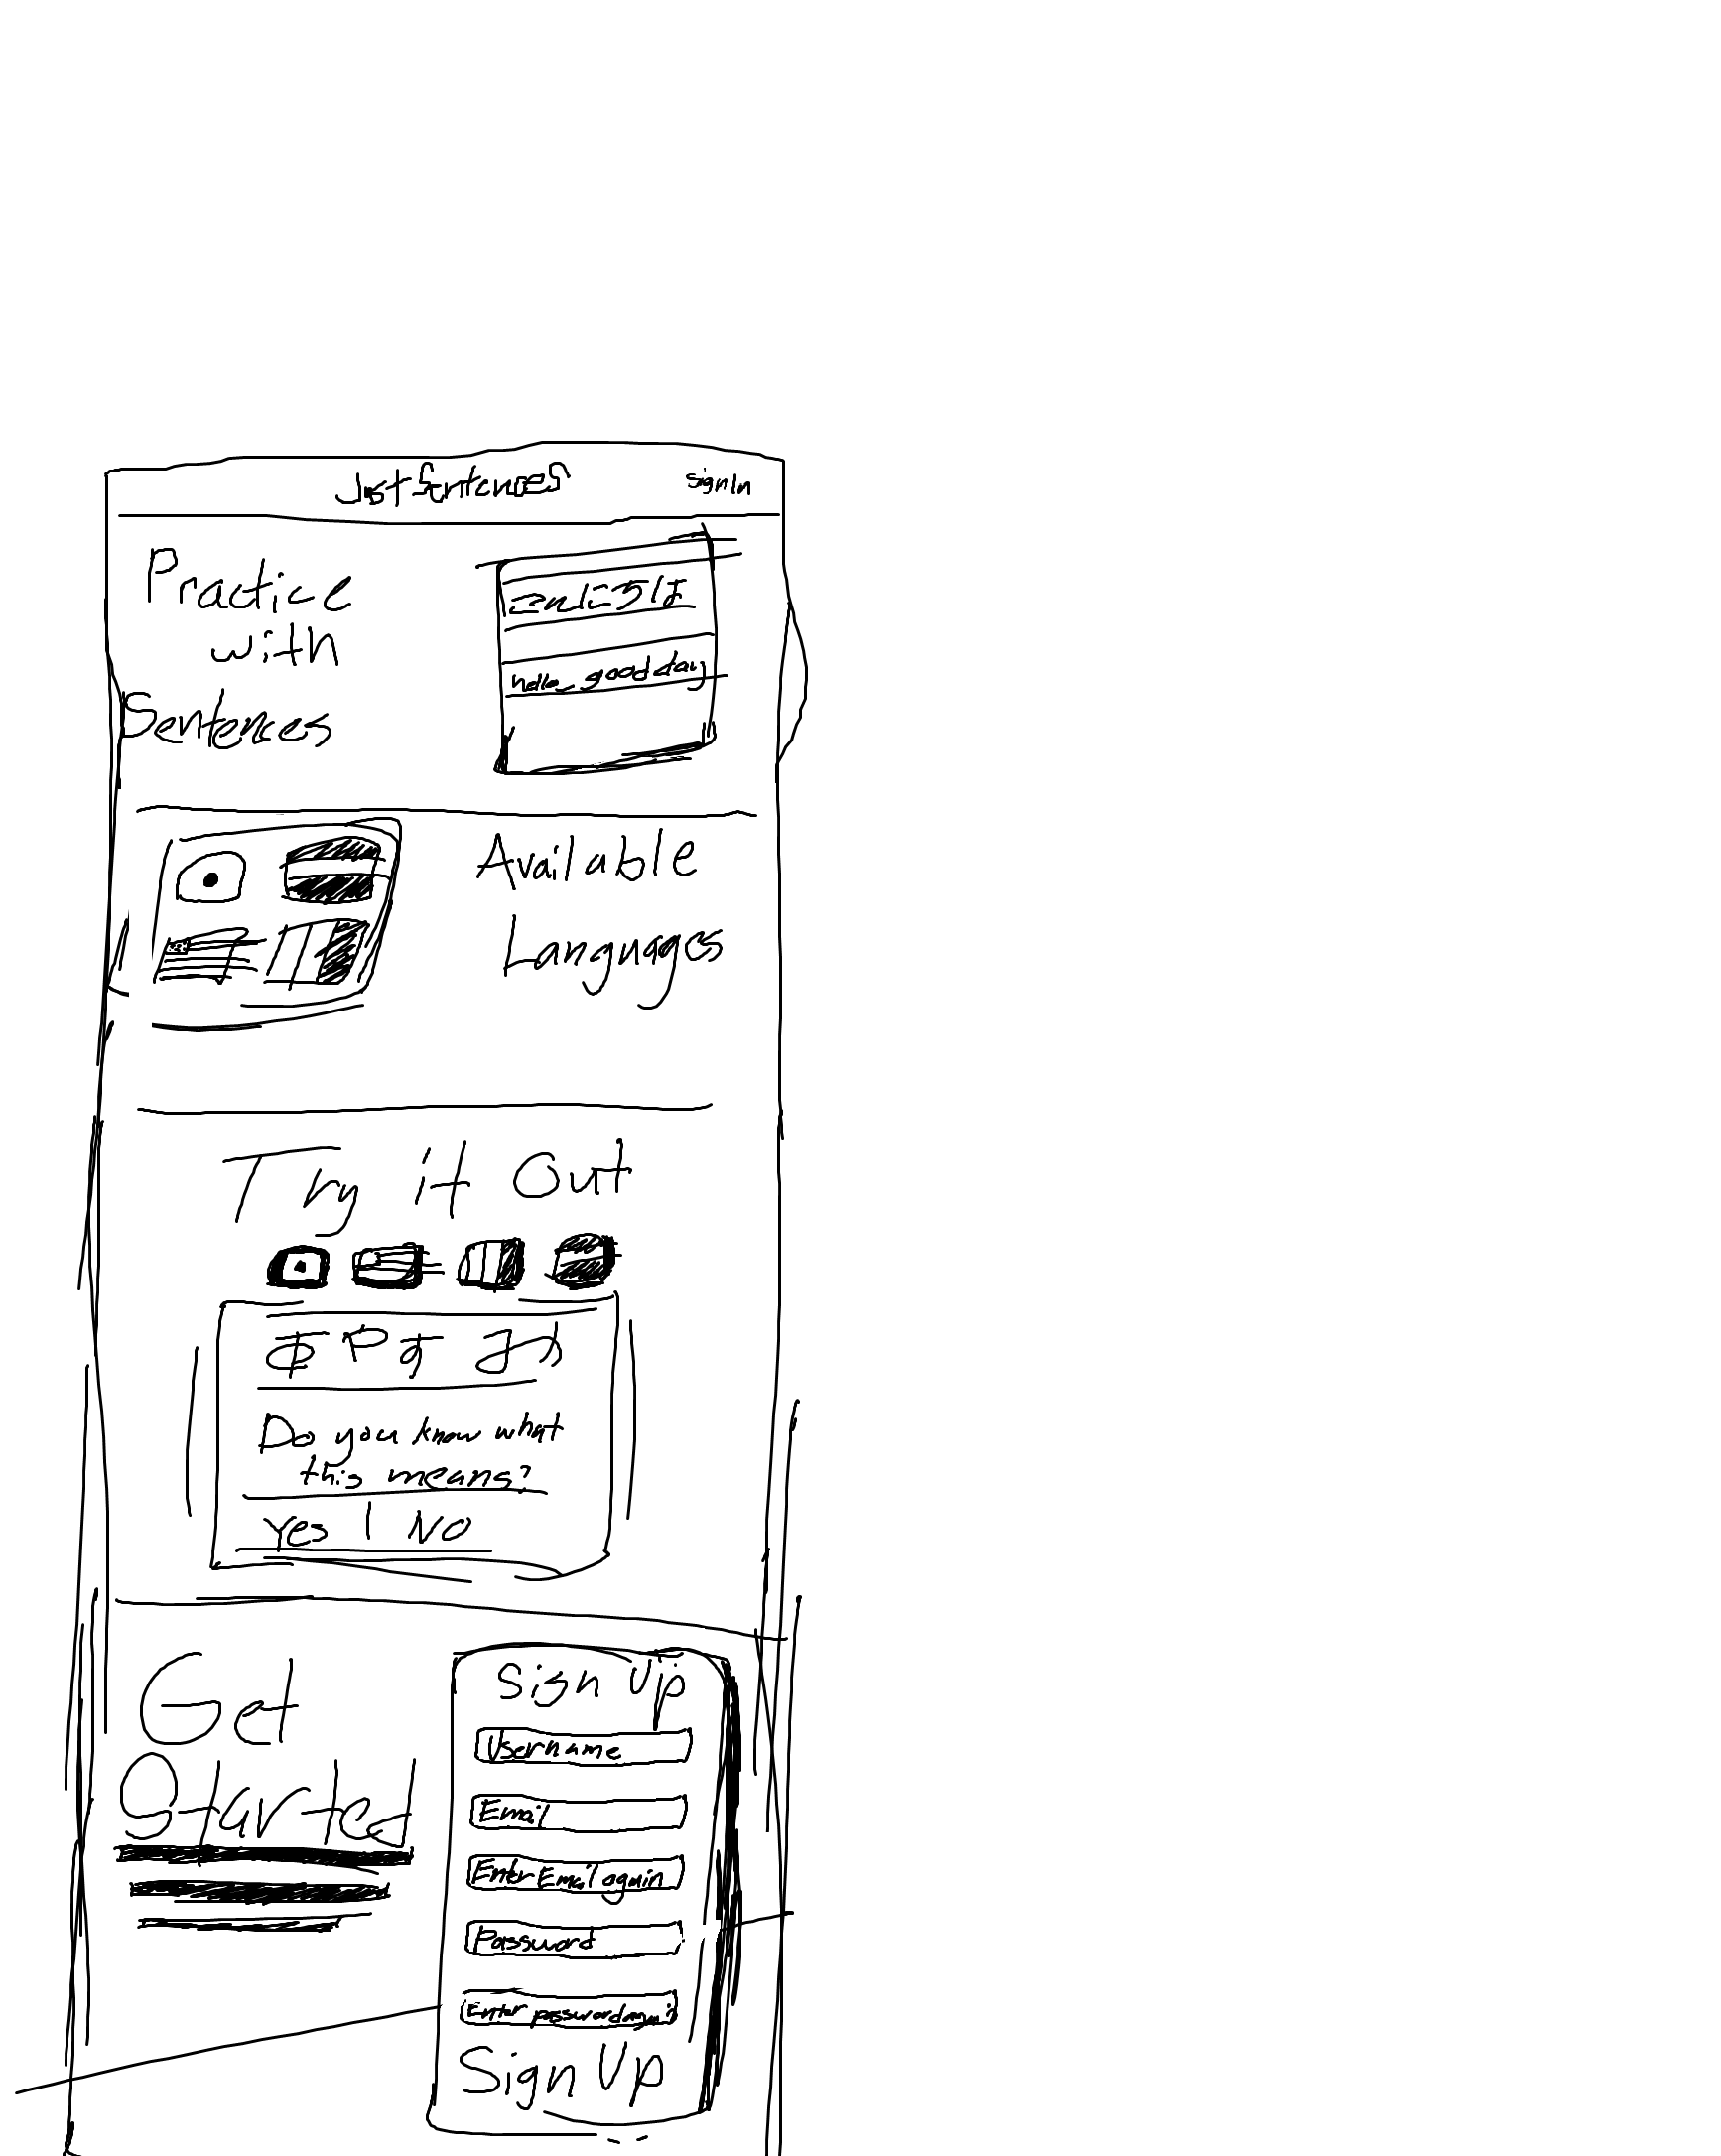 JustSentences
Sign In
Practice
with
Sentences
こんにちは
hello, good day
Available
Languages
Try it Out
Do you know what
this means?
Yes | No
Get
Started
Sign Up
Username
Email
Enter Email again
Password
Enter password again
Sign Up